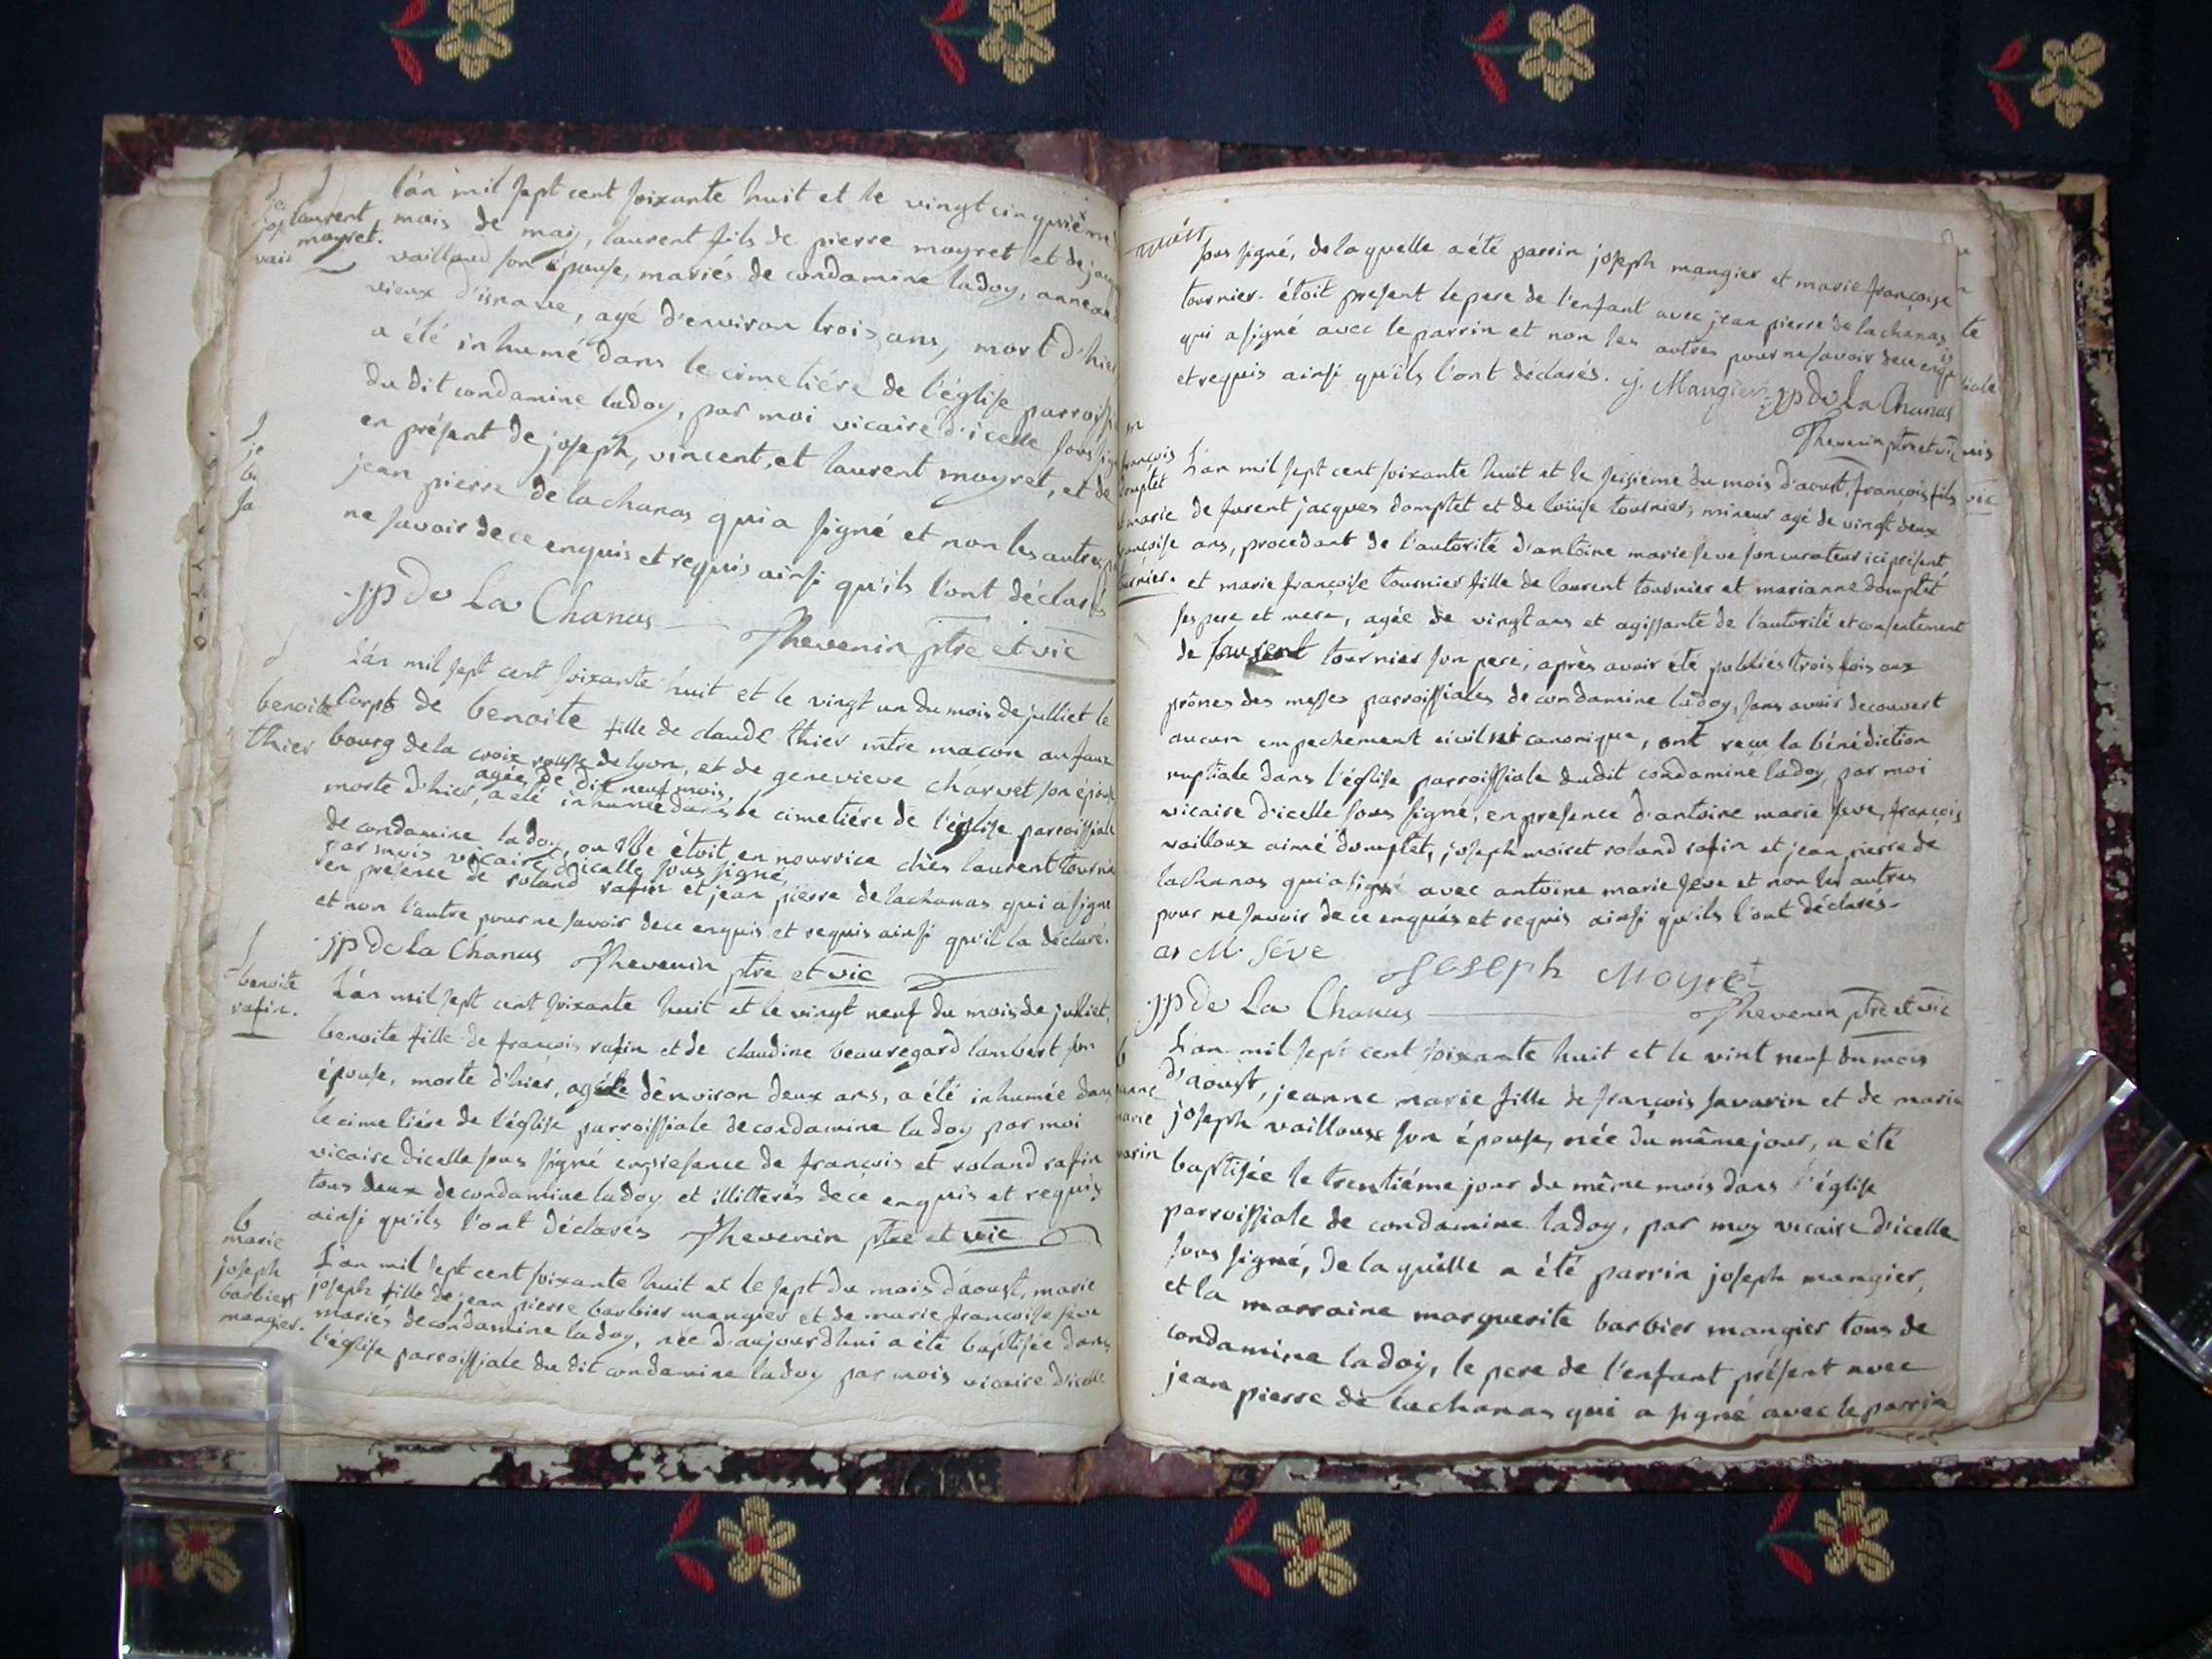 laurent
mayret.
l'an mil sept cent soixante huit et le vingt cinquième
mois de may, laurent fils de pierre mayret et de
vailloud son épouse, mariés de condamine ladoy, annexe
vieux d'isnave, agé d'environ trois ans, mort d'hier
a été inhumé dans le cimetiére de l'église parroissi
du dit condamine ladoy, par moi vicaire d'icelle sous sig
en présent de joseph, vincent, et laurent mayret, et de
jean pierre de lachanas qui a signé et non les autres
ne savoir de ce enquis et requis ainsi qu'ils l'ont déclarés
jp De La Chanas Thevenin ptre et vic
benoite
thier
L'an mil sept cent soixante huit et le vingt un du mois de julliet le
corps de benoite fille de claude thier mtre macon au faux
bourg de la croix rousse de lyon, et de genevieve charvet son épouse
agée de dix neuf mois,
morte d'hier, a été inhumée dans le cimetiére de l'église parroissiale
de condamine ladoy, ou elle étoit en nourrice chés laurent tournie
par mois vicaire d'icelle sous signé,
en présence de roland rafin et jean pierre de lachanas qui a signé
et non l'autre pour ne savoir de ce enquis et requis ainsi qu'il la déclaré.
jp De la Chanas Thevenin ptre et vic
benoite
rafin.
L'an mil sept cent soixante huit et le vingt neuf du mois de julliet,
benoite fille de francois rafin et de claudine beauregard lambert son
épouse, morte d'hier, agée d'environ deux ans, a été inhumée dans
le cimetiére de l'église parroissiale de condamine ladoy par moi
vicaire d'icelle sous signé en presence de francois et roland rafin
tous deux de condamine ladoy et illitterés de ce enquis et requis
ainsi qu'ils l'ont déclarés Thevenin ptre et vic
b
marie
joseph
barbier
mangier.
L'an mil sept cent soixante huit et le sept du mois d'aoust, marie
joseph fille de jean pierre barbier mangier et de marie francoise seve
mariés de condamine ladoy, née d'aujourdhui a été baptisée dans
l'église parroissiale du dit condamine ladoy par mois vicaire d'icelle
sous signé, de laquelle a été parrin joseph mangier et marie françoise
tournier. étoit present le pere de l'enfant avec jean pierre de lachanas
qui a signé avec le parrin et non les autres pour ne savoir de ce enquis
et requis ainsi qu'ils l'ont déclarés. j. Mangier jp De La Chanas
Thevenin ptre et vic
m
françois
domptét
marie
françoise
tournier.
L'an mil sept cent soixante huit et le seisieme du mois d'aoust, francois fils
de furent jacques domptet et de loüise tournier, mineur agé de vingt deux
ans, procedant de l'autorité d'antoine marie seve son curateur ici présent
et marie françoise tournier fille de laurent tournier et marianne domptét
ses pere et mere, agée de vingt ans et agissante de l'autorité et consentement
de laurent tournier son pere, après avoir été publiés trois fois aux
prônes des messes parroissiales de condamine ladoy, sans avoir decouvert
aucun empechement civil ni canonique, ont reçu la bénédiction
nuptiale dans l'église parroissiale dudit condamine ladoy, par moi
vicaire d'icelle sous signé, en presence d'antoine marie seve, francois
vailloux aimé domptét, joseph moiret roland rafin et jean pierre de
lachanas qui a signé avec antoine marie seve et non les autres
pour ne savoir de ce enqués et requis ainsi qu'ils l'ont déclarés.
a M. Séve Joseph Moyret
jp De La Chanas Thevenin ptre et vic
b
L'an mil sept cent soixante huit et le vint neuf du mois
d'aoust, jeanne marie fille de françois savarin et de marie
joseph vailloux son épouse, née du même jour, a été
baptisée le trentiéme jour du même mois dans l'église
parroissiale de condamine ladoy, par moy vicaire d'icelle
sous signé, de laquille a été parrin joseph mangier,
et la marraine marguerite barbier mangier tous de
condamine ladoy, le pere de l'enfant présent avec
jean pierre de lachanas qui a signé avec le parrin